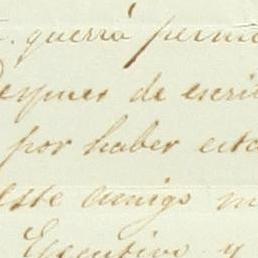 querrá permi
Despues de escri
por haber esta
este amigo m
Executivo y